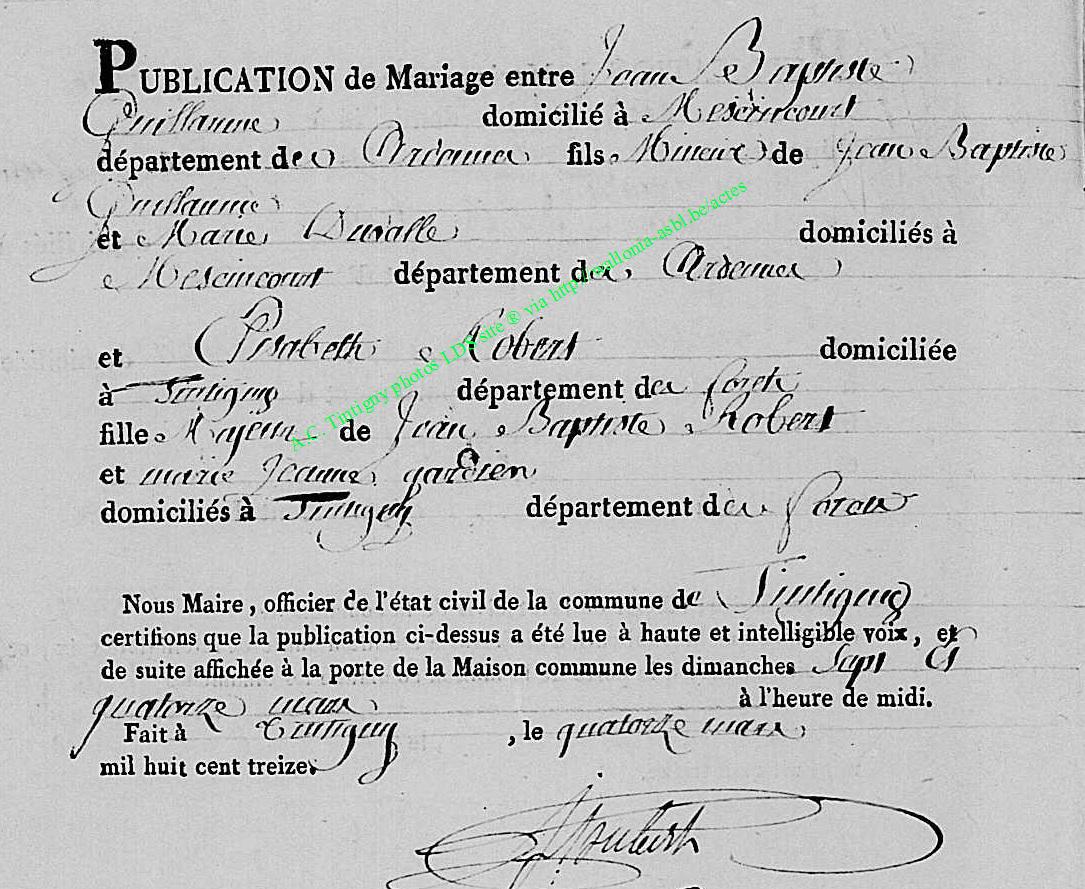 PUBLICATION de Mariage entre Jean Baptiste
Guillaume domicilié à Meséricourt
département des Ardennes fils Mineur de Jean Baptiste
Guillaume
et Marie Duvalle domiciliés à
Mesincourt département des Ardennes
et Elisabeth Robert domiciliée
à Tintigny département des forets
fille Majeur de Jean Baptiste Robert
et marie Jeanne gardien
domiciliés à Tintigny département des
Nous Maire, officier de l'état civil de la commune de Tintigny
certifions que la publication ci-dessus a été lue à haute et intelligible voix, et
de suite affichée à la porte de la Maison commune les dimanches Sept et
quatorze mars à l'heure de midi.
Fait à Tintigny, le quatorze mars
mil huit cent treize.
A.C. Tintigny photos LDS site ® via http://wallonia-asbl.be/actes